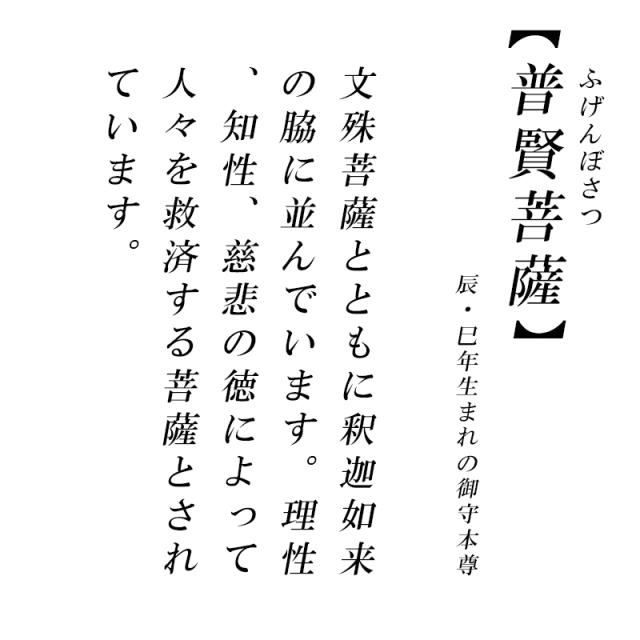 ふげんぼさつ
【普賢菩薩】
辰・巳年生まれの御守本尊
文殊菩薩とともに釈迦如来
の脇に並んでいます。理性
、知性、慈悲の徳によって
人々を救済する菩薩とされ
ています。